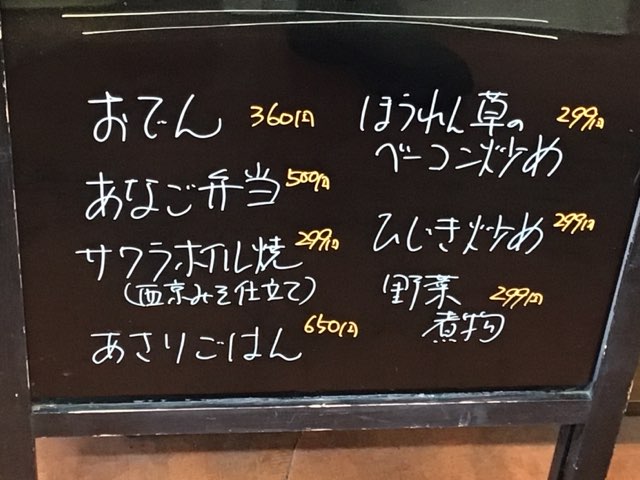 おでん 360円
あなご弁当 500円
サワラホイル焼 299円
(西京みそ仕立て)
あさりごはん 650円
ほうれん草の 299円
ベーコン炒め
ひじき炒め 299円
野菜 299円
煮物